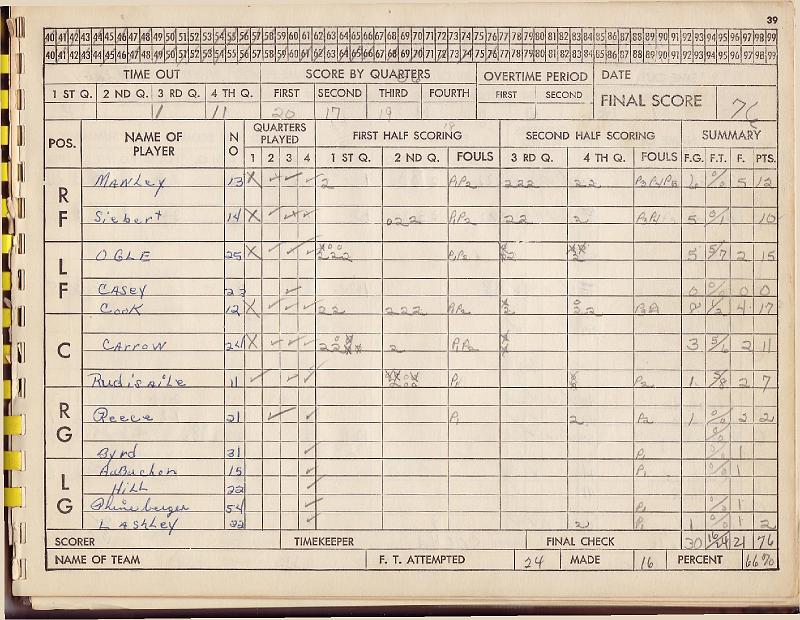 39
40 41 42 43 44 45 46 47 48 49 50 51 52 53 54 55 56 57 58 59 60 61 62 63 64 65 66 67 68 69 70 71 72 73 74 75 76 77 78 79 80 81 82 83 84 85 86 87 88 89 90 91 92 93 94 95 96 97 98 99
40 41 42 43 44 45 46 47 48 49 50 51 52 53 54 55 56 57 58 59 60 61 62 63 64 65 66 67 68 69 70 71 72 73 74 75 76 77 78 79 80 81 82 83 84 85 86 87 88 89 90 91 92 93 94 95 96 97 98 99
TIME OUT SCORE BY QUARTERS OVERTIME PERIOD DATE
1 ST Q. 2 ND Q. 3 RD Q. 4 TH Q. FIRST SECOND THIRD FOURTH FIRST SECOND FINAL SCORE 76
20 17 19
POS. NAME OF PLAYER NO QUARTERS PLAYED FIRST HALF SCORING SECOND HALF SCORING SUMMARY
1 2 3 4 1 ST Q. 2 ND Q. FOULS 3 RD Q. 4 TH Q. FOULS F.G. F.T. F. PTS.
RF MANLEY 13 X 2 P1P2 222 22 P3P4P5 6 0/0 5 12
Siebert 14 X 022 P1P2 22 2 P3P4 5 0/1 10
LF OGLE 25 X 222 P1P2 2 2 5 5/7 2 15
CASEY 23 0 0/0 0 0
COOK 12 X 22 222 P1P2 2 22 8 1/2 4 17
C CARROW 24 X 22 2 P1P2 3 5/6 2 11
Rudisaile 11 P1 P2 1 5/8 2 7
RG Reece 21 P1 2 P2 1 0/0 2 2
Byrd 31 P1 0/0 1
LG AuBuchon 15 P1 0/0 1
Hill 22
Rhineberger 54 P1 0/0 1
LASHLEY 22 2 P1 1 0/0 1 2
SCORER TIMEKEEPER FINAL CHECK 30 16/24 21 76
NAME OF TEAM F. T. ATTEMPTED 24 MADE 16 PERCENT 66%